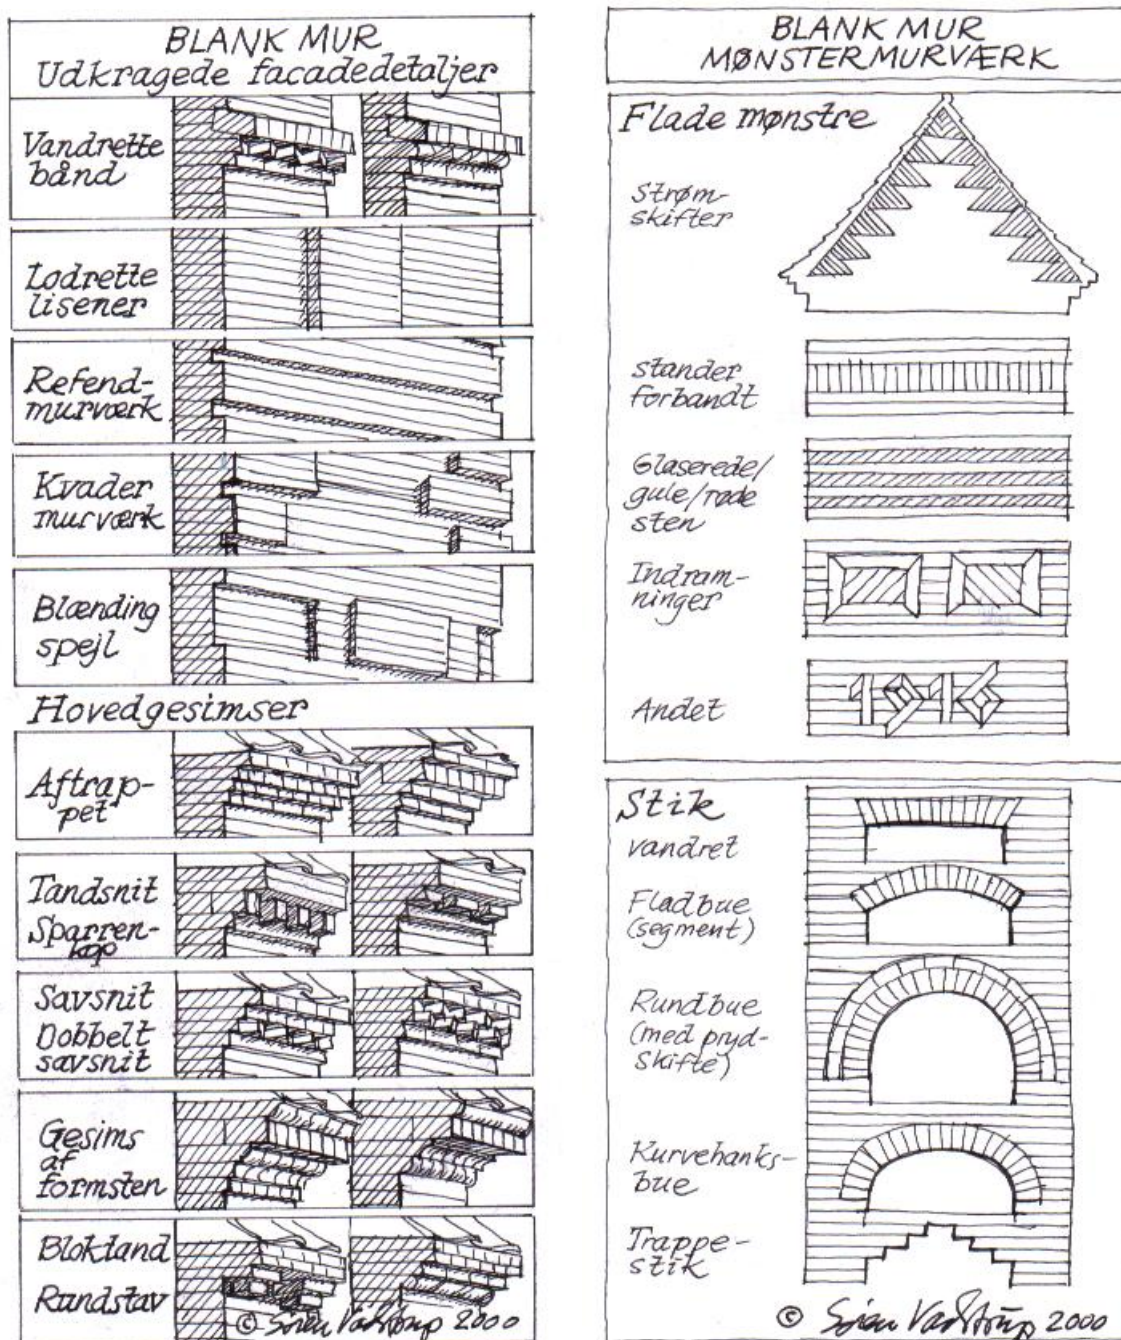 BLANK MUR
Udkragede facadedetaljer
Vandrette
bånd
Lodrette
lisener
Refend-
murværk
Kvader
murværk
Blænding
spejl
Hovedgesimser
Aftrap-
pet
Tandsnit
Sparren-
kop
Savsnit
Dobbelt
savsnit
Gesims
af
formsten
Bloktand
Rundstav
© Søren Vadstrup 2000
BLANK MUR
MØNSTERMURVÆRK
Flade mønstre
Strøm-
skifter
stander
forbandt
Glaserede/
gule/røde
sten
Indram-
ninger
Andet
Stik
vandret
Fladbue
(segment)
Rundbue
(med pryd-
skifte)
Kurvehanks-
bue
Trappe-
stik
© Søren Vadstrup 2000